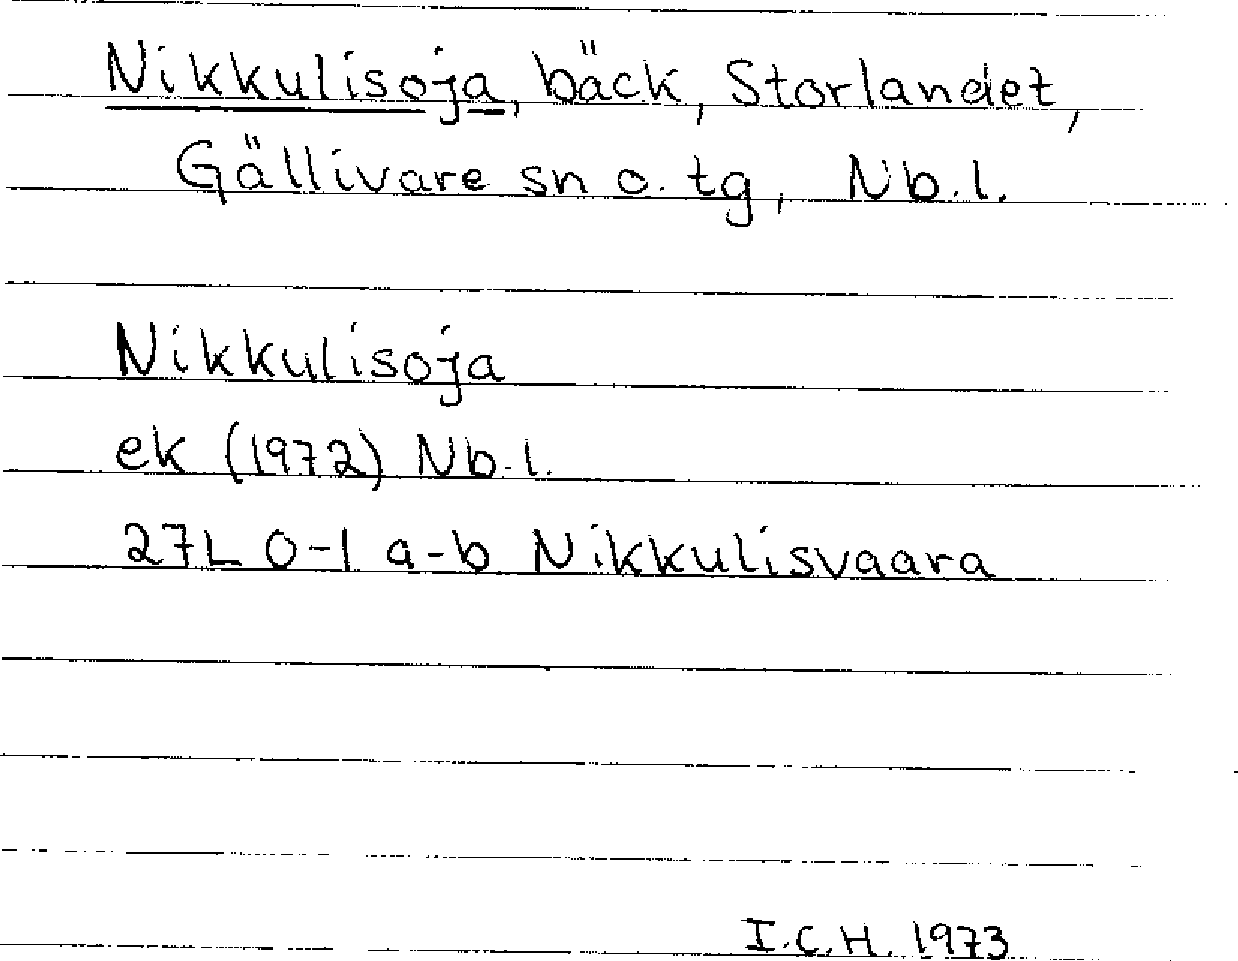 Nikkulisoja, bäck, Storlandet,
Gällivare sn o. tg, Nb.l.
Nikkulisoja
ek (1972) Nb.l.
27L 0-1 a-b Nikkulisvaara
I.C.H. 1973